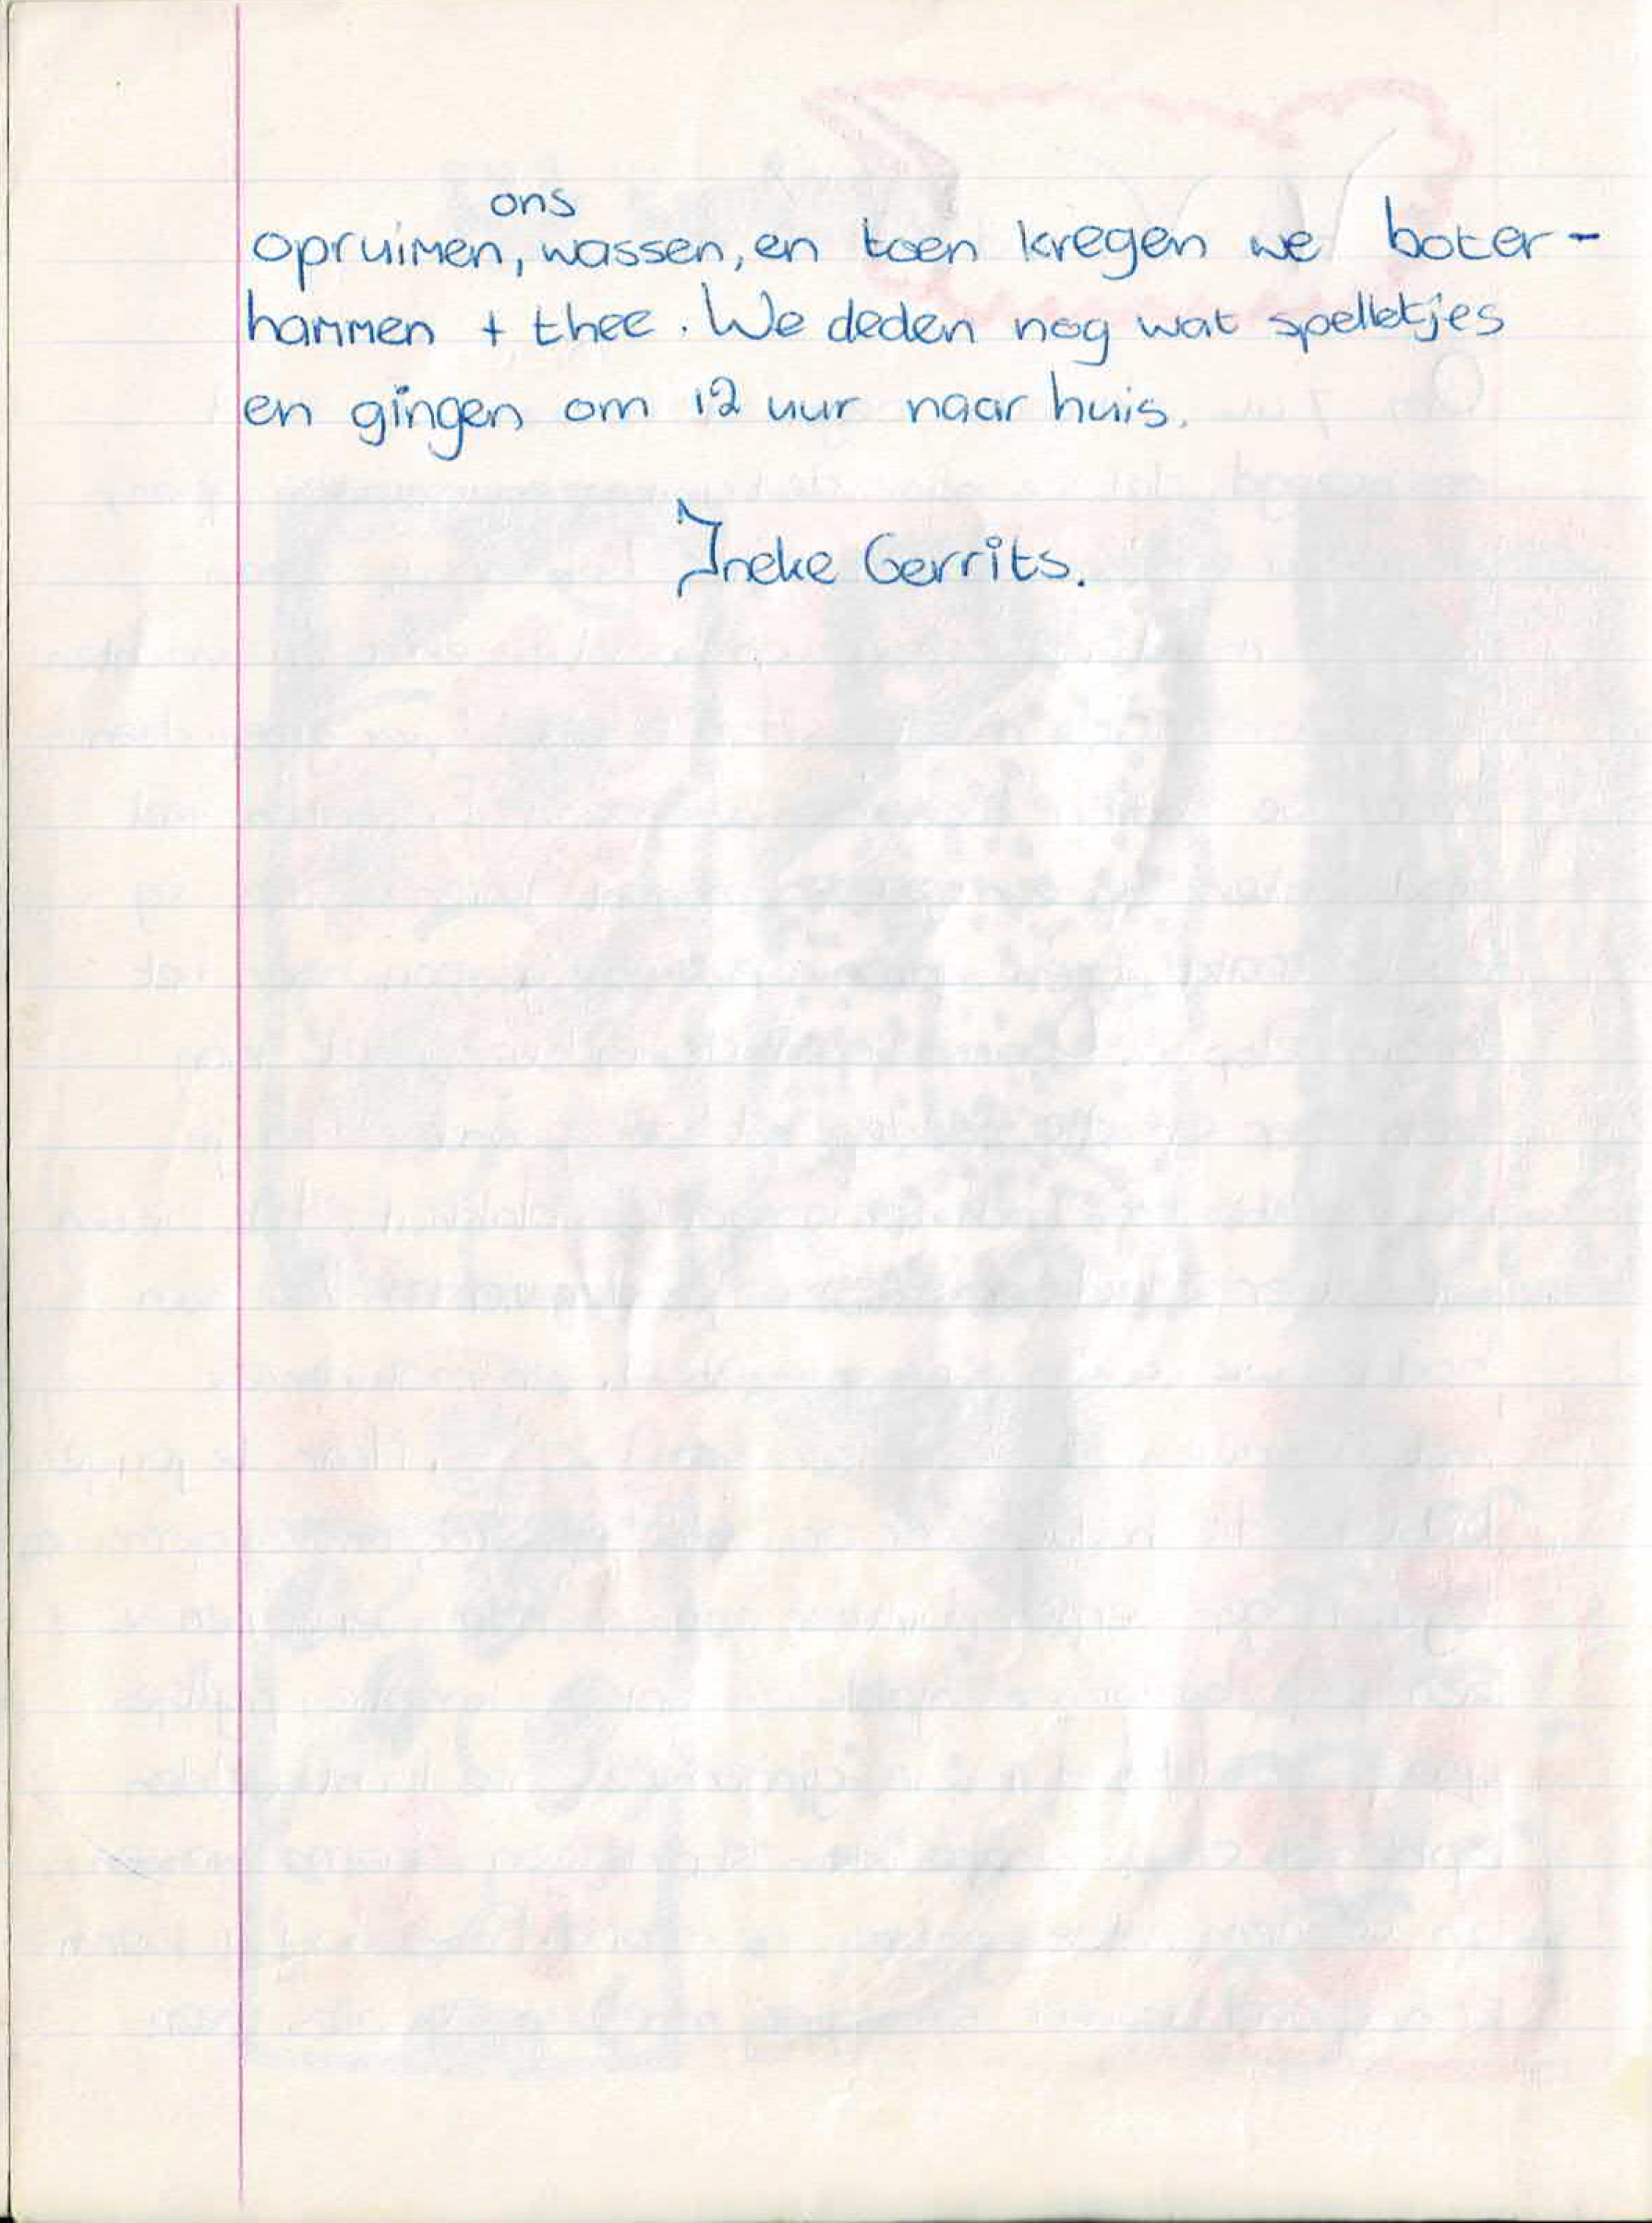 ons
opruimen, wassen, en toen kregen we boter-
hammen + thee. We deden nog wat spelletjes
en gingen om 12 uur naar huis.
Ineke Gerrits.